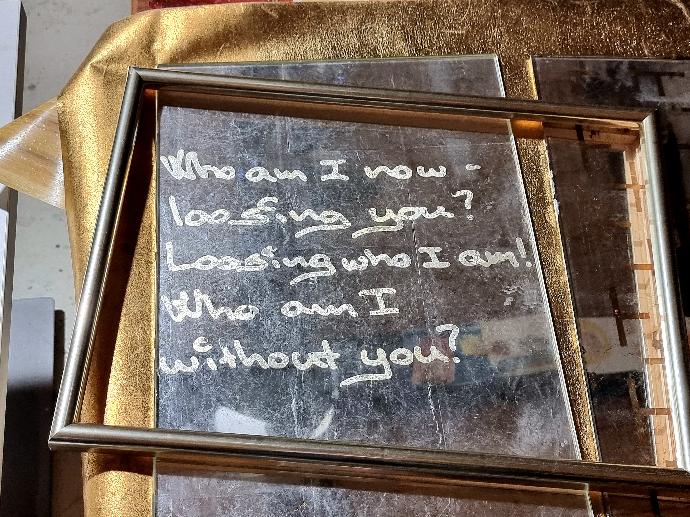 Who am I now -
loosing you?
Loosing who I am!
Who am I
without you?